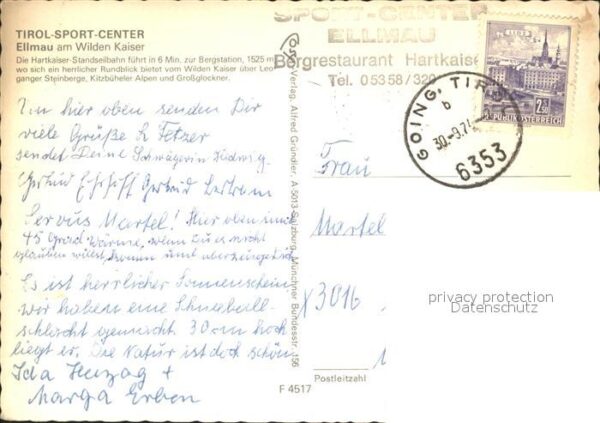 TIROL-SPORT-CENTER
Ellmau am Wilden Kaiser
Die Hartkaiser-Standseilbahn führt in 6 Min. zur Bergstation, 1525 m
wo sich ein herrlicher Rundblick bietet vom Wilden Kaiser über Leo
ganger Steinberge, Kitzbüheler Alpen und Großglockner.
SPORT-CENTER
ELLMAU
Bergrestaurant Hartkaise
Tel. 05358/320
2.50
REPUBLIK ÖSTERREICH
GOING, TIROL
b
30.-9.74
6353
hier oben senden Dir
viele Grüße L. Fetzer
sendet Deine Schwägerin
Gertrud Gertrud
Servus Martel! Hier oben sind
45 Grad Wärme, wenn Du es nicht
glauben willst, komm und
Es ist herrlicher Sonnenschein
wir haben eine Schneeball-
schlacht gemacht. 30 cm hoch
liegt er. Die Natur ist doch schön
Ida Herzog +
Marga Erben
Verlag Alfred Gründler, A 5013 Salzburg, Münchner Bundesstr. 156
Frau
Martel
X 3016
Postleitzahl
F 4517
privacy protection
Datenschutz